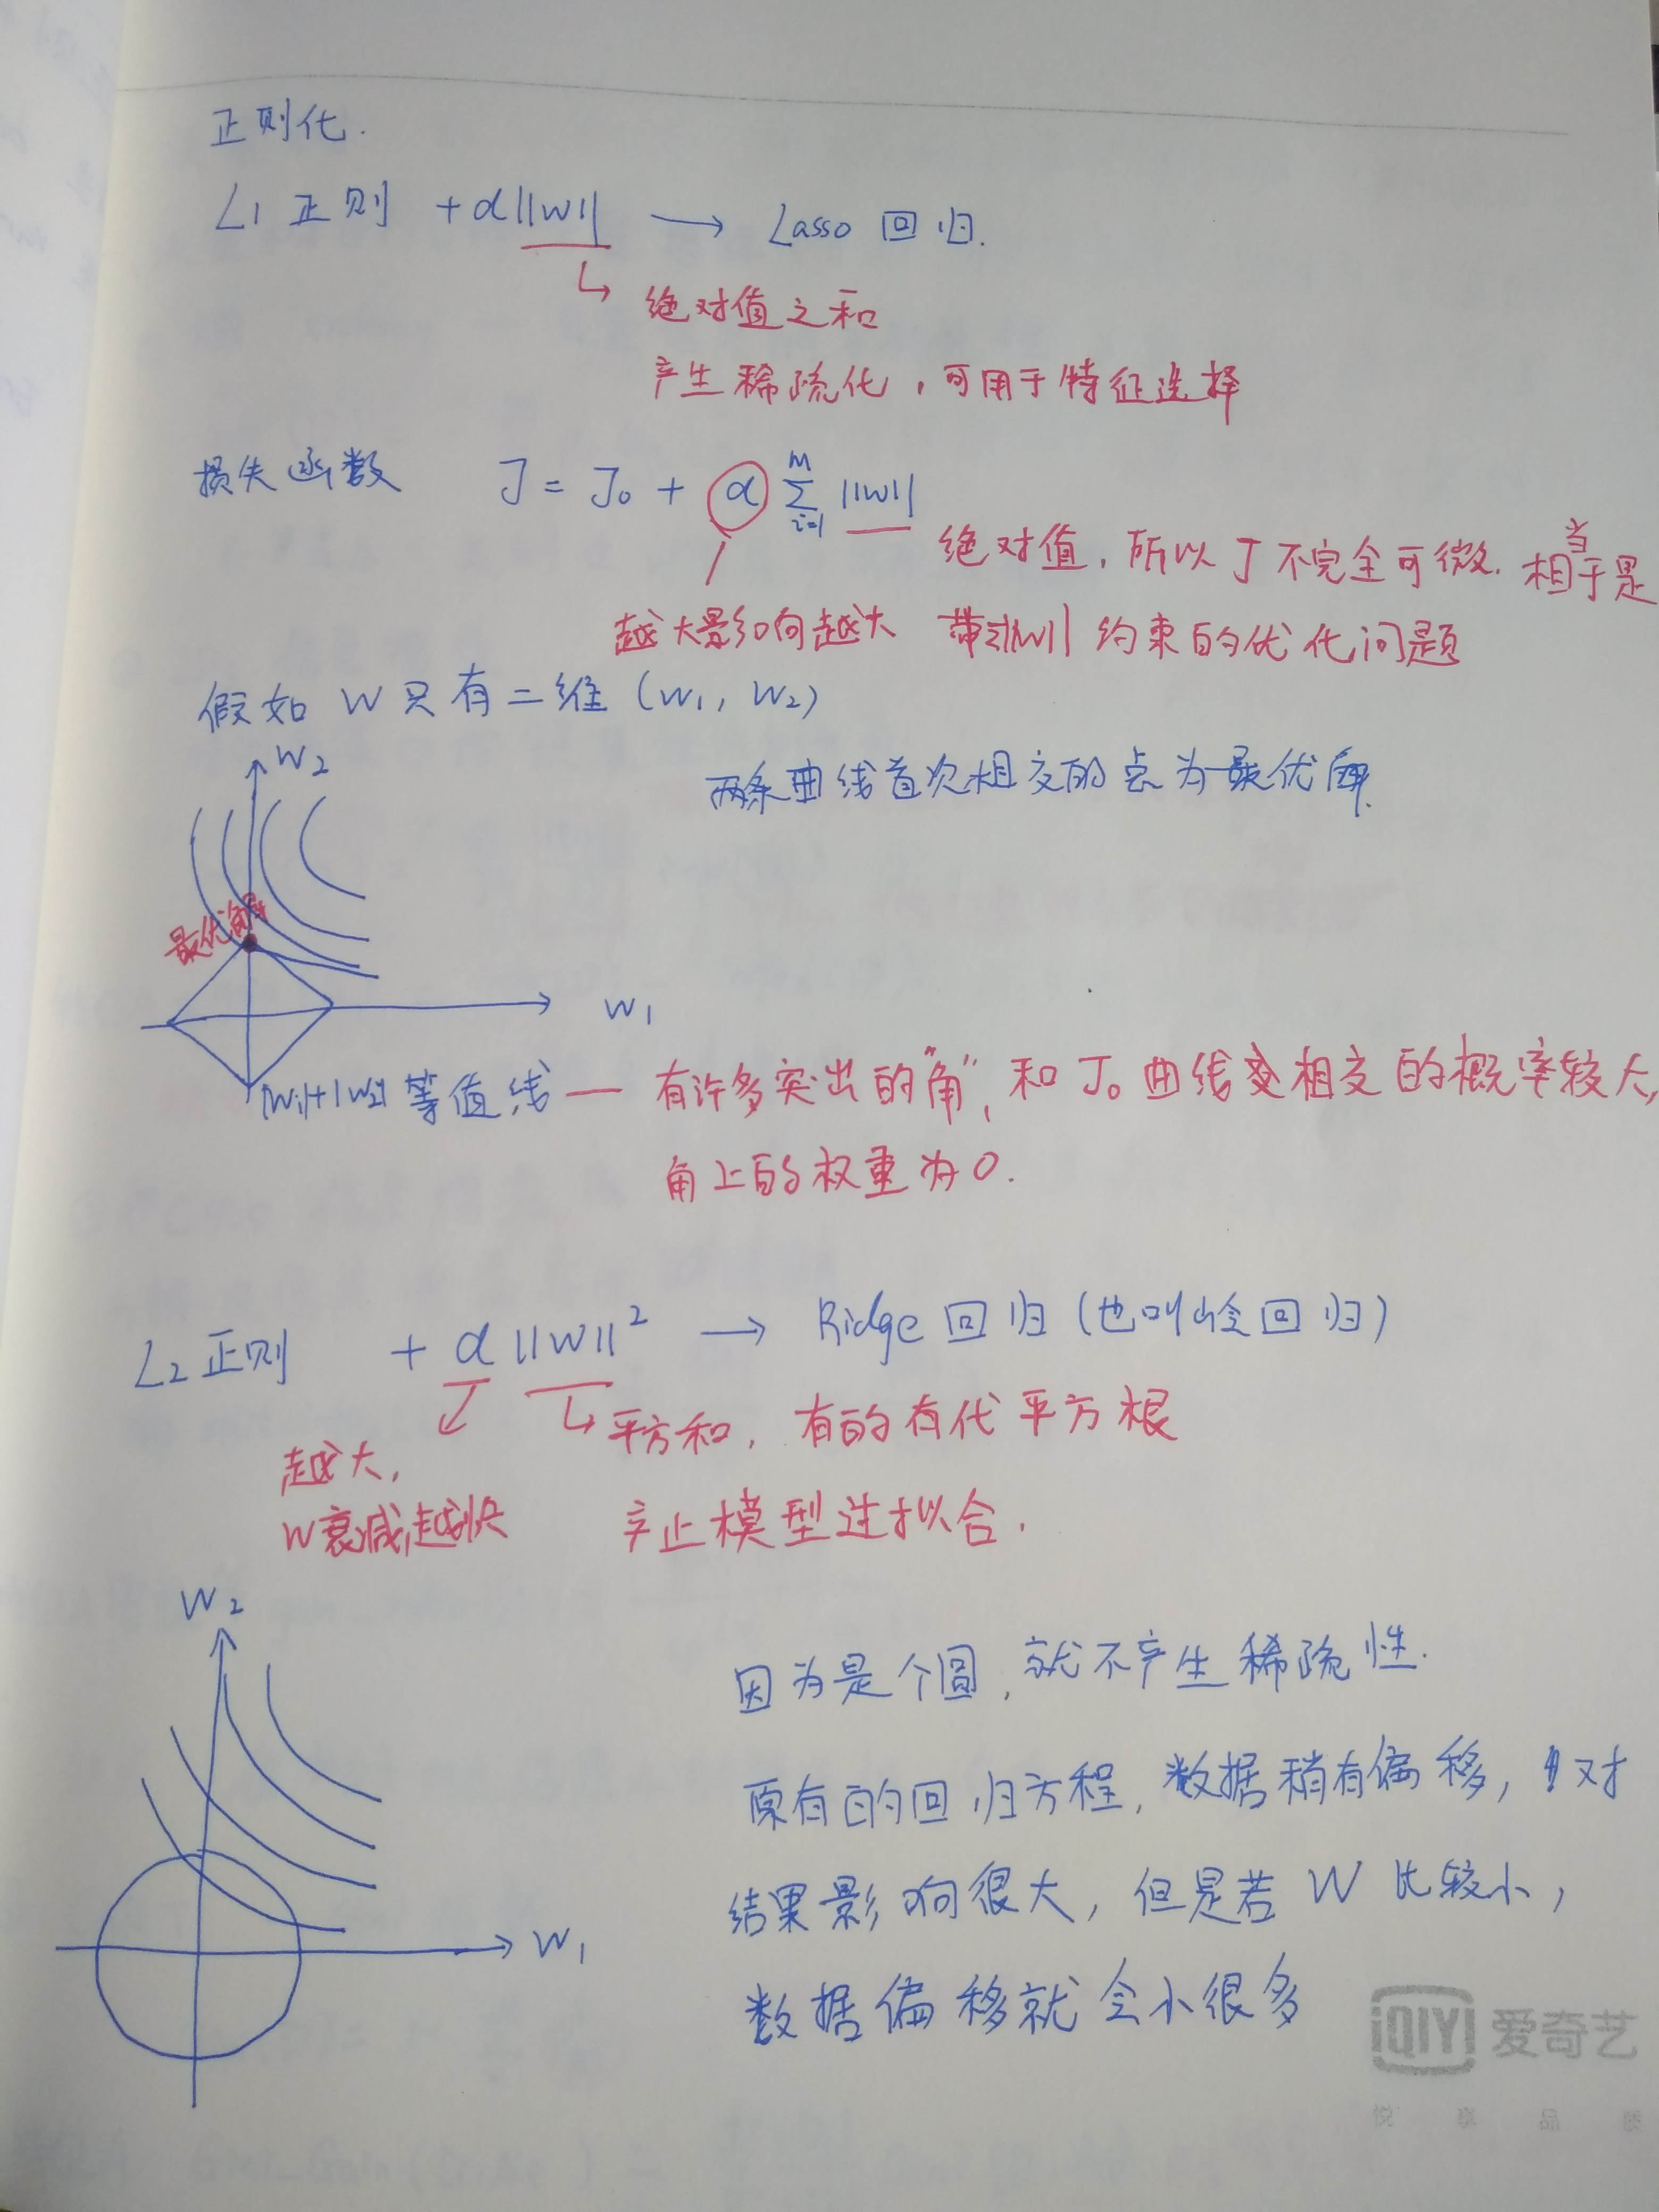 正则化.
L1 正则 +α||w|| → Lasso 回归.
↳ 绝对值之和
产生稀疏化，可用于特征选择
损失函数 J = J₀ + α ∑ᵢ₌₁ᴹ ||w||
绝对值，所以J不完全可微. 相当于是
越大影响越大 带 ||w|| 约束的优化问题
假如 W 只有二维 (w₁, w₂)
w₂
两条曲线首次相交的点为最优解.
最优解
w₁
|w₁|+|w₂| 等值线 — 有许多突出的"角", 和 J₀ 曲线相交的概率较大,
角上的权重为0.
L₂ 正则 + α||w||² → Ridge 回归 (也叫岭回归)
↳ 平方和，有的有代平方根
越大,
W衰减越快 防止模型过拟合.
w₂
因为是个圆，就不产生稀疏性.
原有的回归方程，数据稍有偏移，对
结果影响很大，但是若 W 比较小，
w₁
数据偏移就会小很多
iQIYI 爱奇艺
悦 享 品 质